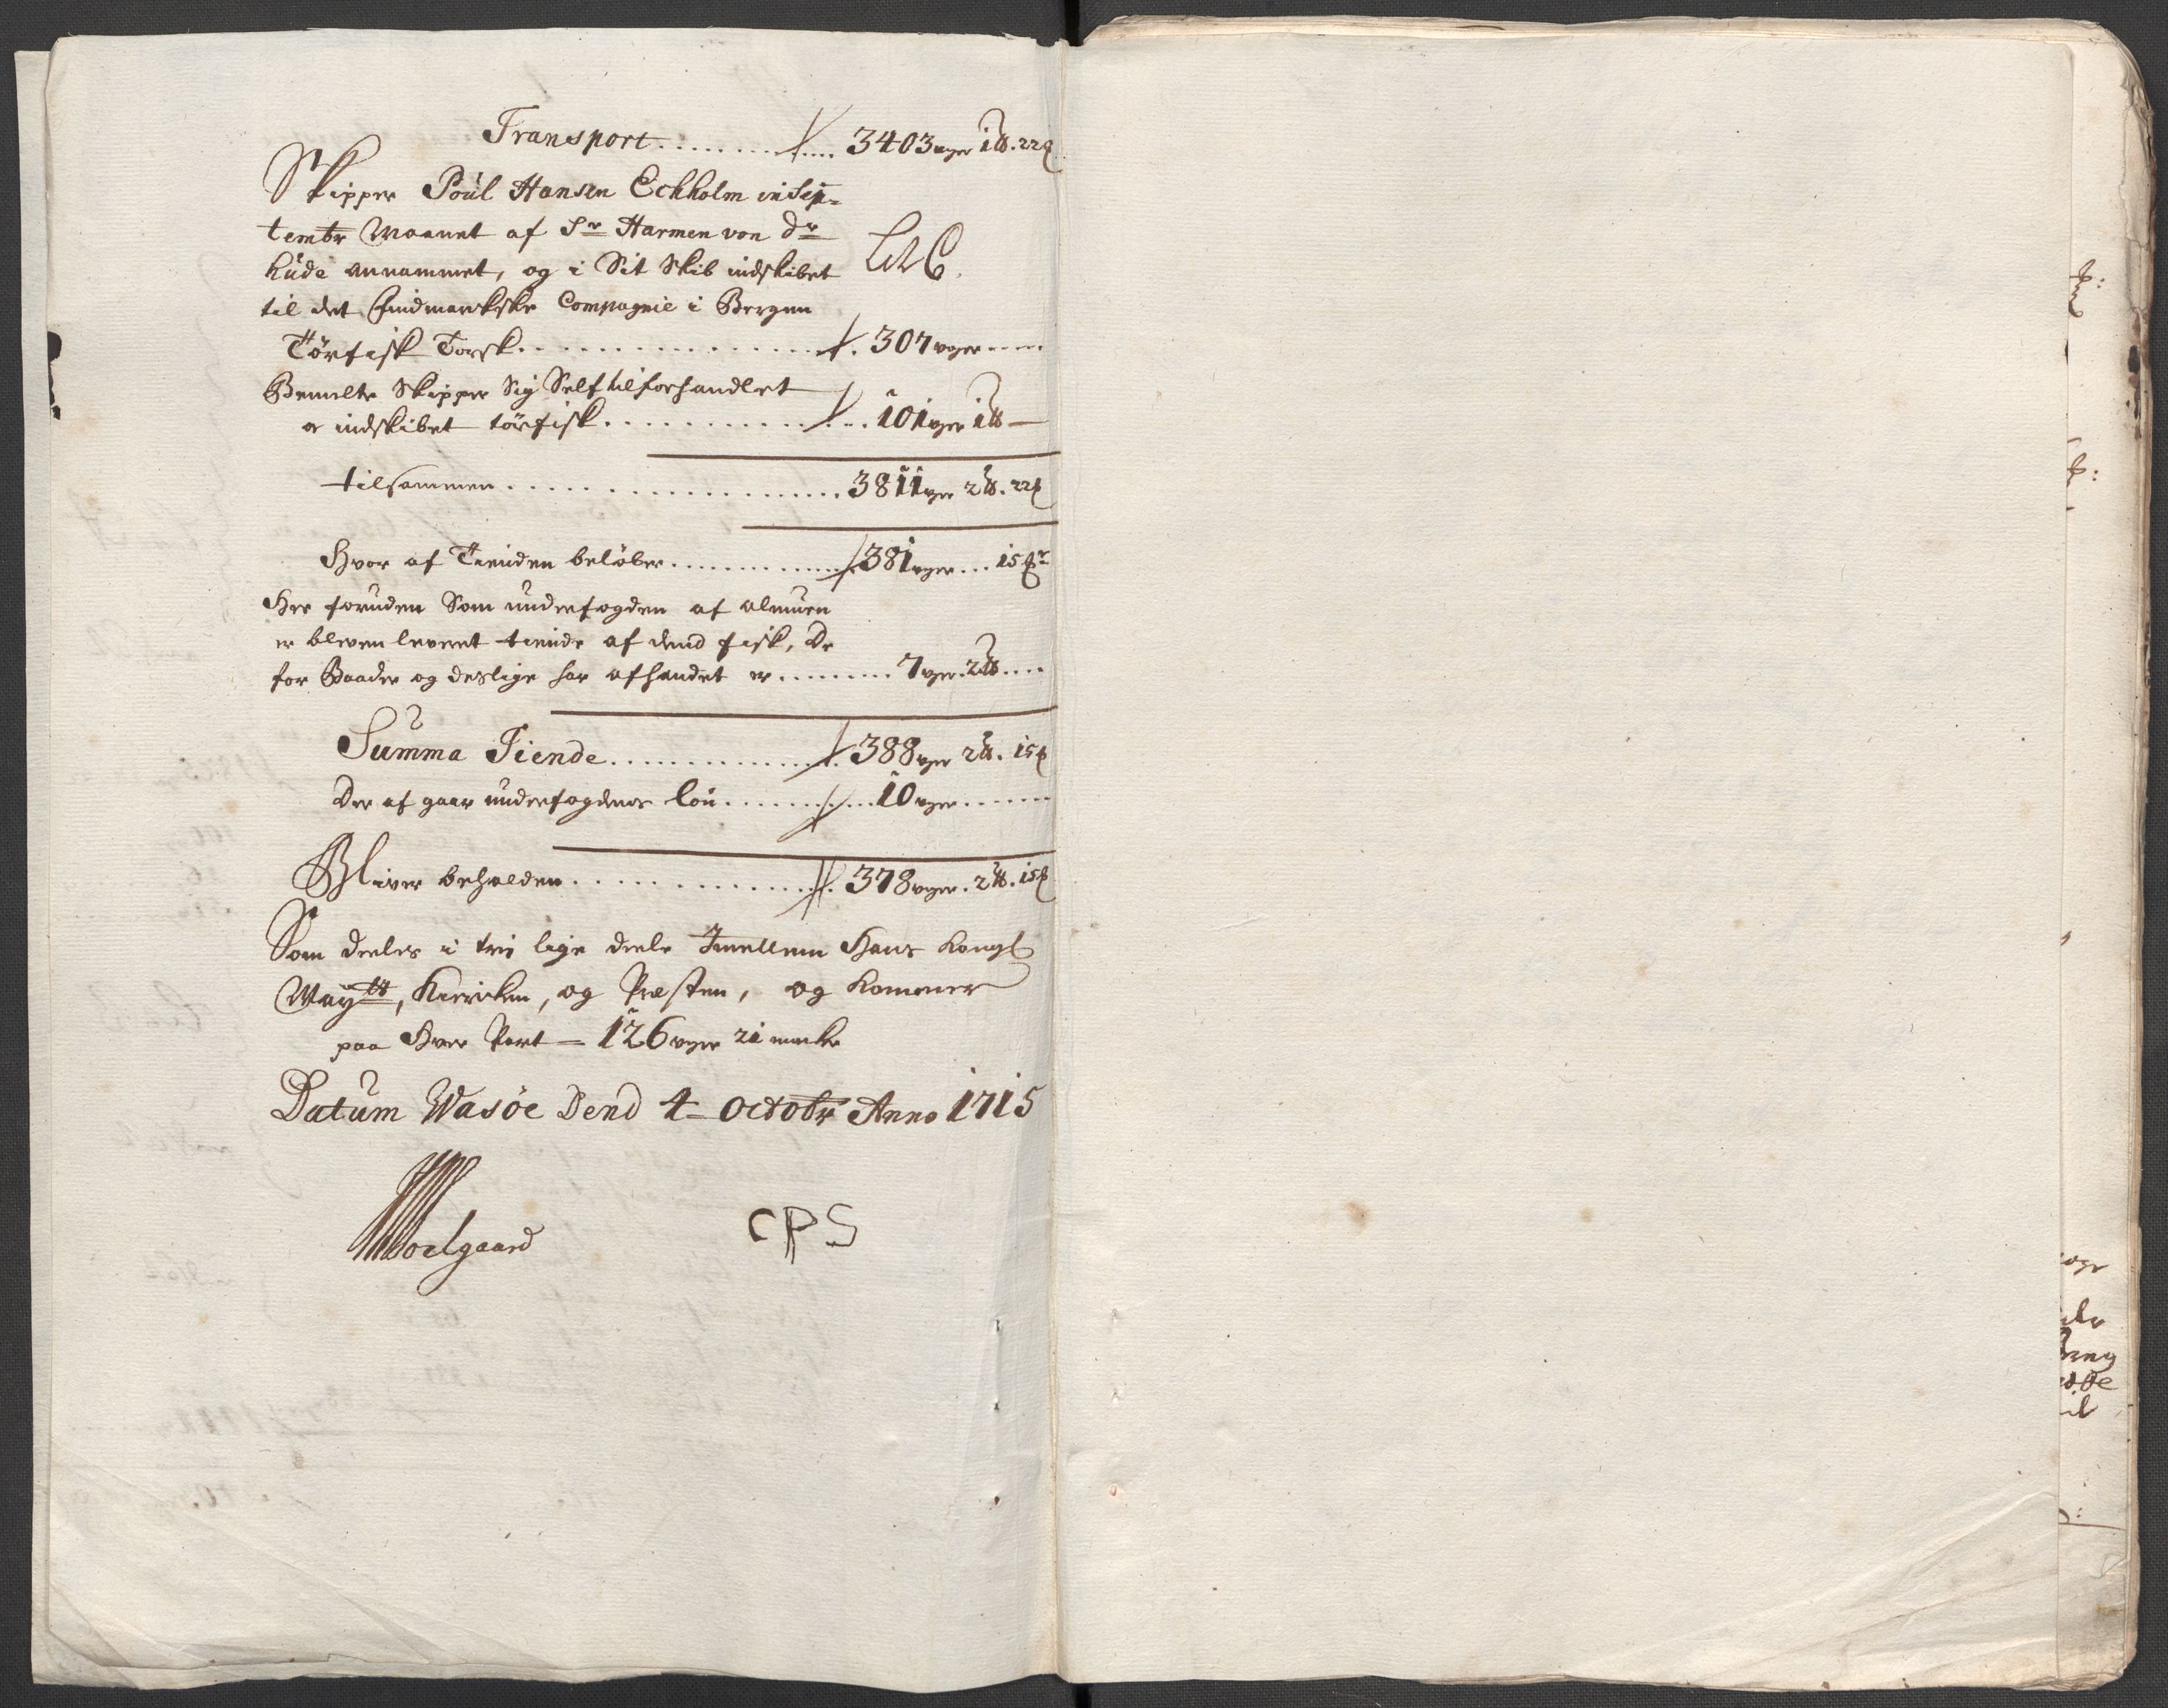 Transport ........ 3403 woger 1 ℔. 22 ₰
Skipper Poul Hansen Eckholm in Sep-
tembr Maanet af Sr Harmen von dr
hude annammet, og i Sit Skib indskibet
til det Findmarkske Compagnie i Bergen
Törfisk Torsk ........ 307 woger ----
Bemelte Skipper Sig Self tilforhandlet
oc indskibet törfisk ........ 101 woger 1 ℔ —
tilsammen ........ 3811 woger 2 ℔. 22 ₰
Hvor af Tienden belöber ........ 381 woger ... 15 ₰r
Her foruden Som underfogden af almuen
er bleven leveret tiende af dend fisk, De
for Baader og deslige har afhandet er ........ 7 woger. 2 ℔ ....
Summa Tiende ........ 388 woger 2 ℔. 15 ₰
Der af gaar underfogdens lön ........ 10 woger ........
Bliver beholden ........ 378 woger. 2 ℔. 15 ₰
Som deeles i tre lige deele Imellem Hans Kongl
Maytt, Kiercken, og Præsten, og kommer
paa Hver Part — 126 woger 21 marker
Datum Wasöe Dend 4 — Octobr Anno 1715
CPS